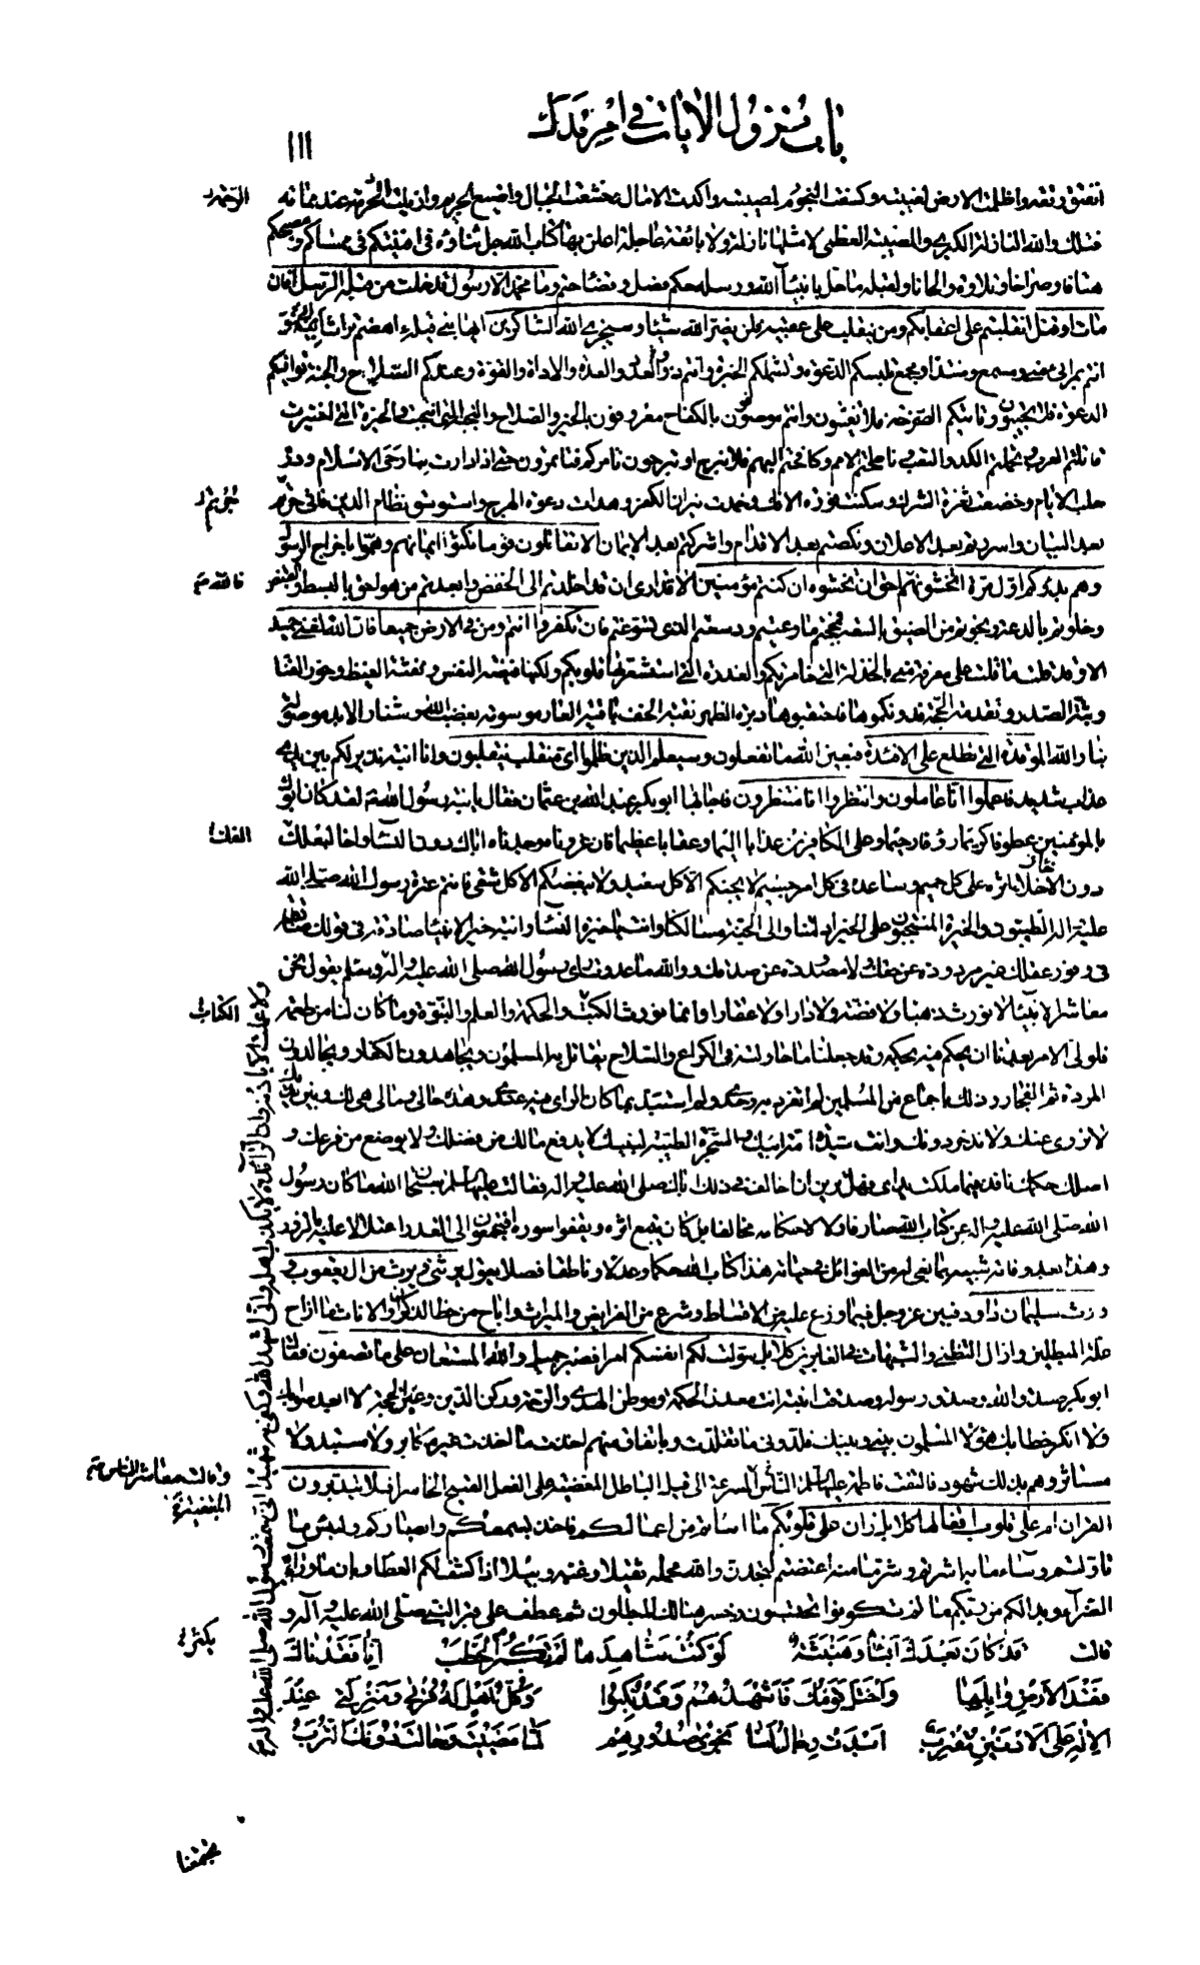 باب نزول الايات في امر فدك
١١١
انفتق رتقه واظلمت الارض لغيبته وكسفت النجوم لمصيبته واكدت الامال وخشعت الجبال واضيع الحريم وازيلت الحرمة عند مماته
الرحمة
فتلك والله النازلة الكبرى والمصيبة العظمى لا مثلها نازلة ولا بائقة عاجلة اعلن بها كتاب الله جل ثناؤه في افنيتكم في ممساكم ومصبحكم
هتافا وصراخا وتلاوة والحانا ولقبله ما حل بانبياء الله ورسله حكم فصل وقضاء حتم وما محمد الا رسول قد خلت من قبله الرسل افان
مات او قتل انقلبتم على اعقابكم ومن ينقلب على عقبيه فلن يضر الله شيئا وسيجزي الله الشاكرين ايها بني قيلة ءاهضم تراث ابيه و
انتم بمراى مني ومسمع ومنتدا ومجمع تلبسكم الدعوة وتشملكم الخبرة وانتم ذوو العدد والعدة والاداة والقوة وعندكم السلاح والجنة توافيكم
الدعوة فلا تجيبون وتاتيكم الصرخة فلا تغيثون وانتم موصوفون بالكفاح معروفون بالخير والصلاح والنجبة التي انتجبت والخيرة التي اختيرت
قاتلتم العرب وتحملتم الكد والتعب وناطحتم الامم وكافحتم البهم فلا نبرح او تبرحون نامركم فتاتمرون حتى اذا دارت بنا رحى الاسلام ودر
حلب الايام وخضعت نعرة الشرك وسكنت فورة الافك وخمدت نيران الكفر وهدات دعوة الهرج واستوسق نظام الدين فانى حرتم
جزتم
بعد البيان واسررتم بعد الاعلان ونكصتم بعد الاقدام واشركتم بعد الايمان الا تقاتلون قوما نكثوا ايمانهم وهموا باخراج الرسول
وهم بدؤكم اول مرة اتخشونهم فالله احق ان تخشوه ان كنتم مؤمنين الا قد ارى ان قد اخلدتم الى الخفض وابعدتم من هو احق بالبسط والقبض
وخلوتم بالدعة ونجوتم من الضيق بالسعة فمججتم ما وعيتم ودسعتم الذي تسوغتم فان تكفروا انتم ومن في الارض جميعا فان الله لغني حميد
الا وقد قلت ما قلت على معرفة مني بالخذلة التي خامرتكم والغدرة التي استشعرتها قلوبكم ولكنها فيضة النفس ونفثة الغيظ وخور القنا
وبثة الصدر وتقدمة الحجة فدونكموها فاحتقبوها دبرة الظهر نقبة الخف باقية العار موسومة بغضب الله وشنار الابد موصولة
بنار الله الموقدة التي تطلع على الافئدة فبعين الله ما تفعلون وسيعلم الذين ظلموا اي منقلب ينقلبون وانا ابنة نذير لكم بين يدي
عذاب شديد فاعملوا انا عاملون وانتظروا انا منتظرون فاجابها ابو بكر عبد الله بن عثمان فقال يا بنت رسول الله لقد كان ابوك
بالمؤمنين عطوفا كريما رؤفا رحيما وعلى الكافرين عذابا اليما وعقابا عظيما فان عزوناه وجدناه اباك دون النساء واخا لبعلك
دون الاخلاء اثره على كل حميم وساعده في كل امر جسيم لا يحبكم الا كل سعيد ولا يبغضكم الا كل شقي فانتم عترة رسول الله صلى الله
عليه واله الطيبون والخيرة المنتجبون على الخير ادلتنا والى الجنة مسالكنا وانت يا خيرة النساء وابنة خير الانبياء صادقة في قولك سابقة
في وفور عقلك غير مردودة عن حقك ولا مصدودة عن صدقك ووالله ما عدوت راى رسول الله صلى الله عليه واله وسلم يقول نحن
معاشر الانبياء لا نورث ذهبا ولا فضة ولا دارا ولا عقارا وانما نورث الكتب والحكمة والعلم والنبوة وما كان لنا من طعمة
الكتاب
فلولي الامر بعدنا ان يحكم فيه بحكمه وقد جعلنا ما حاولته في الكراع والسلاح يقاتل به المسلمون ويجاهدون الكفار ويجالدون
المردة ثم الفجار وذلك باجماع من المسلمين لم اتفرد به وحدي ولم استبد بما كان الراي فيه عندي وهذه حالي ومالي هي لك وبين يديك
لا نزوي عنك ولا ندخر دونك وانت سيدة امة ابيك والشجرة الطيبة لبنيك لا يدفع مالك من فضلك ولا يوضع من فرعك و
اصلك حكمك نافذ فيما ملكت يداي فهل ترين ان اخالف في ذلك اباك صلى الله عليه واله فقالت عليها سلم سبحان الله ما كان رسول
الله صلى الله عليه واله عن كتاب الله صادفا ولا لاحكامه مخالفا بل كان يتبع اثره ويقفو سوره افتجمعون الى الغدر اعتلالا عليه بالزور
وهذا بعد وفاته شبيه بما بغي له من الغوائل في حياته هذا كتاب الله حكما وعدلا وناطقا فصلا يقول يرثني ويرث من ال يعقوب و
ورث سليمان داود فبين عز وجل فيما وزع عليه من الاقساط وشرع من الفرايض والميراث واباح من حظ الذكران والاناث ما ازاح
علة المبطلين وازال التظني والشبهات في الغابرين كلا بل سولت لكم انفسكم امرا فصبر جميل والله المستعان على ما تصفون فقال
ابو بكر صدق والله وصدق رسوله وصدقت ابنته انت معدن الحكمة وموطن الهدى والرحمة وركن الدين وعين الحجة لا ابعد صوابك
ولا انكر خطابك هؤلاء المسلمون بيني وبينك قلدوني ما تقلدت وباتفاق منهم اخذت ما اخذت غير مكابر ولا مستبد ولا
مستاثر وهم بذلك شهود فالتفت فاطمة عليها سلم الى الناس المسرعة الى قيل الباطل المغضية على الفعل القبيح الخاسر افلا تتدبرون
وقالت معاشر الناس
القران ام على قلوب اقفالها كلا بل ران على قلوبكم ما اساتم من اعمالكم فاخذ بسمعكم وابصاركم ولبئس ما
تاولتم وساء ما به اشرتم وشر ما منه اعتضتم لتجدن والله محمله ثقيلا وغبه وبيلا اذا كشف لكم الغطاء وبان ما وراءه
الضراء وبدا لكم من ربكم ما لم تكونوا تحتسبون وخسر هنالك المبطلون ثم عطف على قبر النبي صلى الله عليه واله و
قالت قد كان بعدك انباء وهنبثة لو كنت شاهدها لم تكثر الخطب انا فقدناك
فقد الارض وابلها واختل قومك فاشهدهم وقد نكبوا وكل اهل له قربى ومنزلة عند
الاله على الادنين مقترب ابدت رجال لنا نجوى صدورهم لما مضيت وحالت دونك الترب